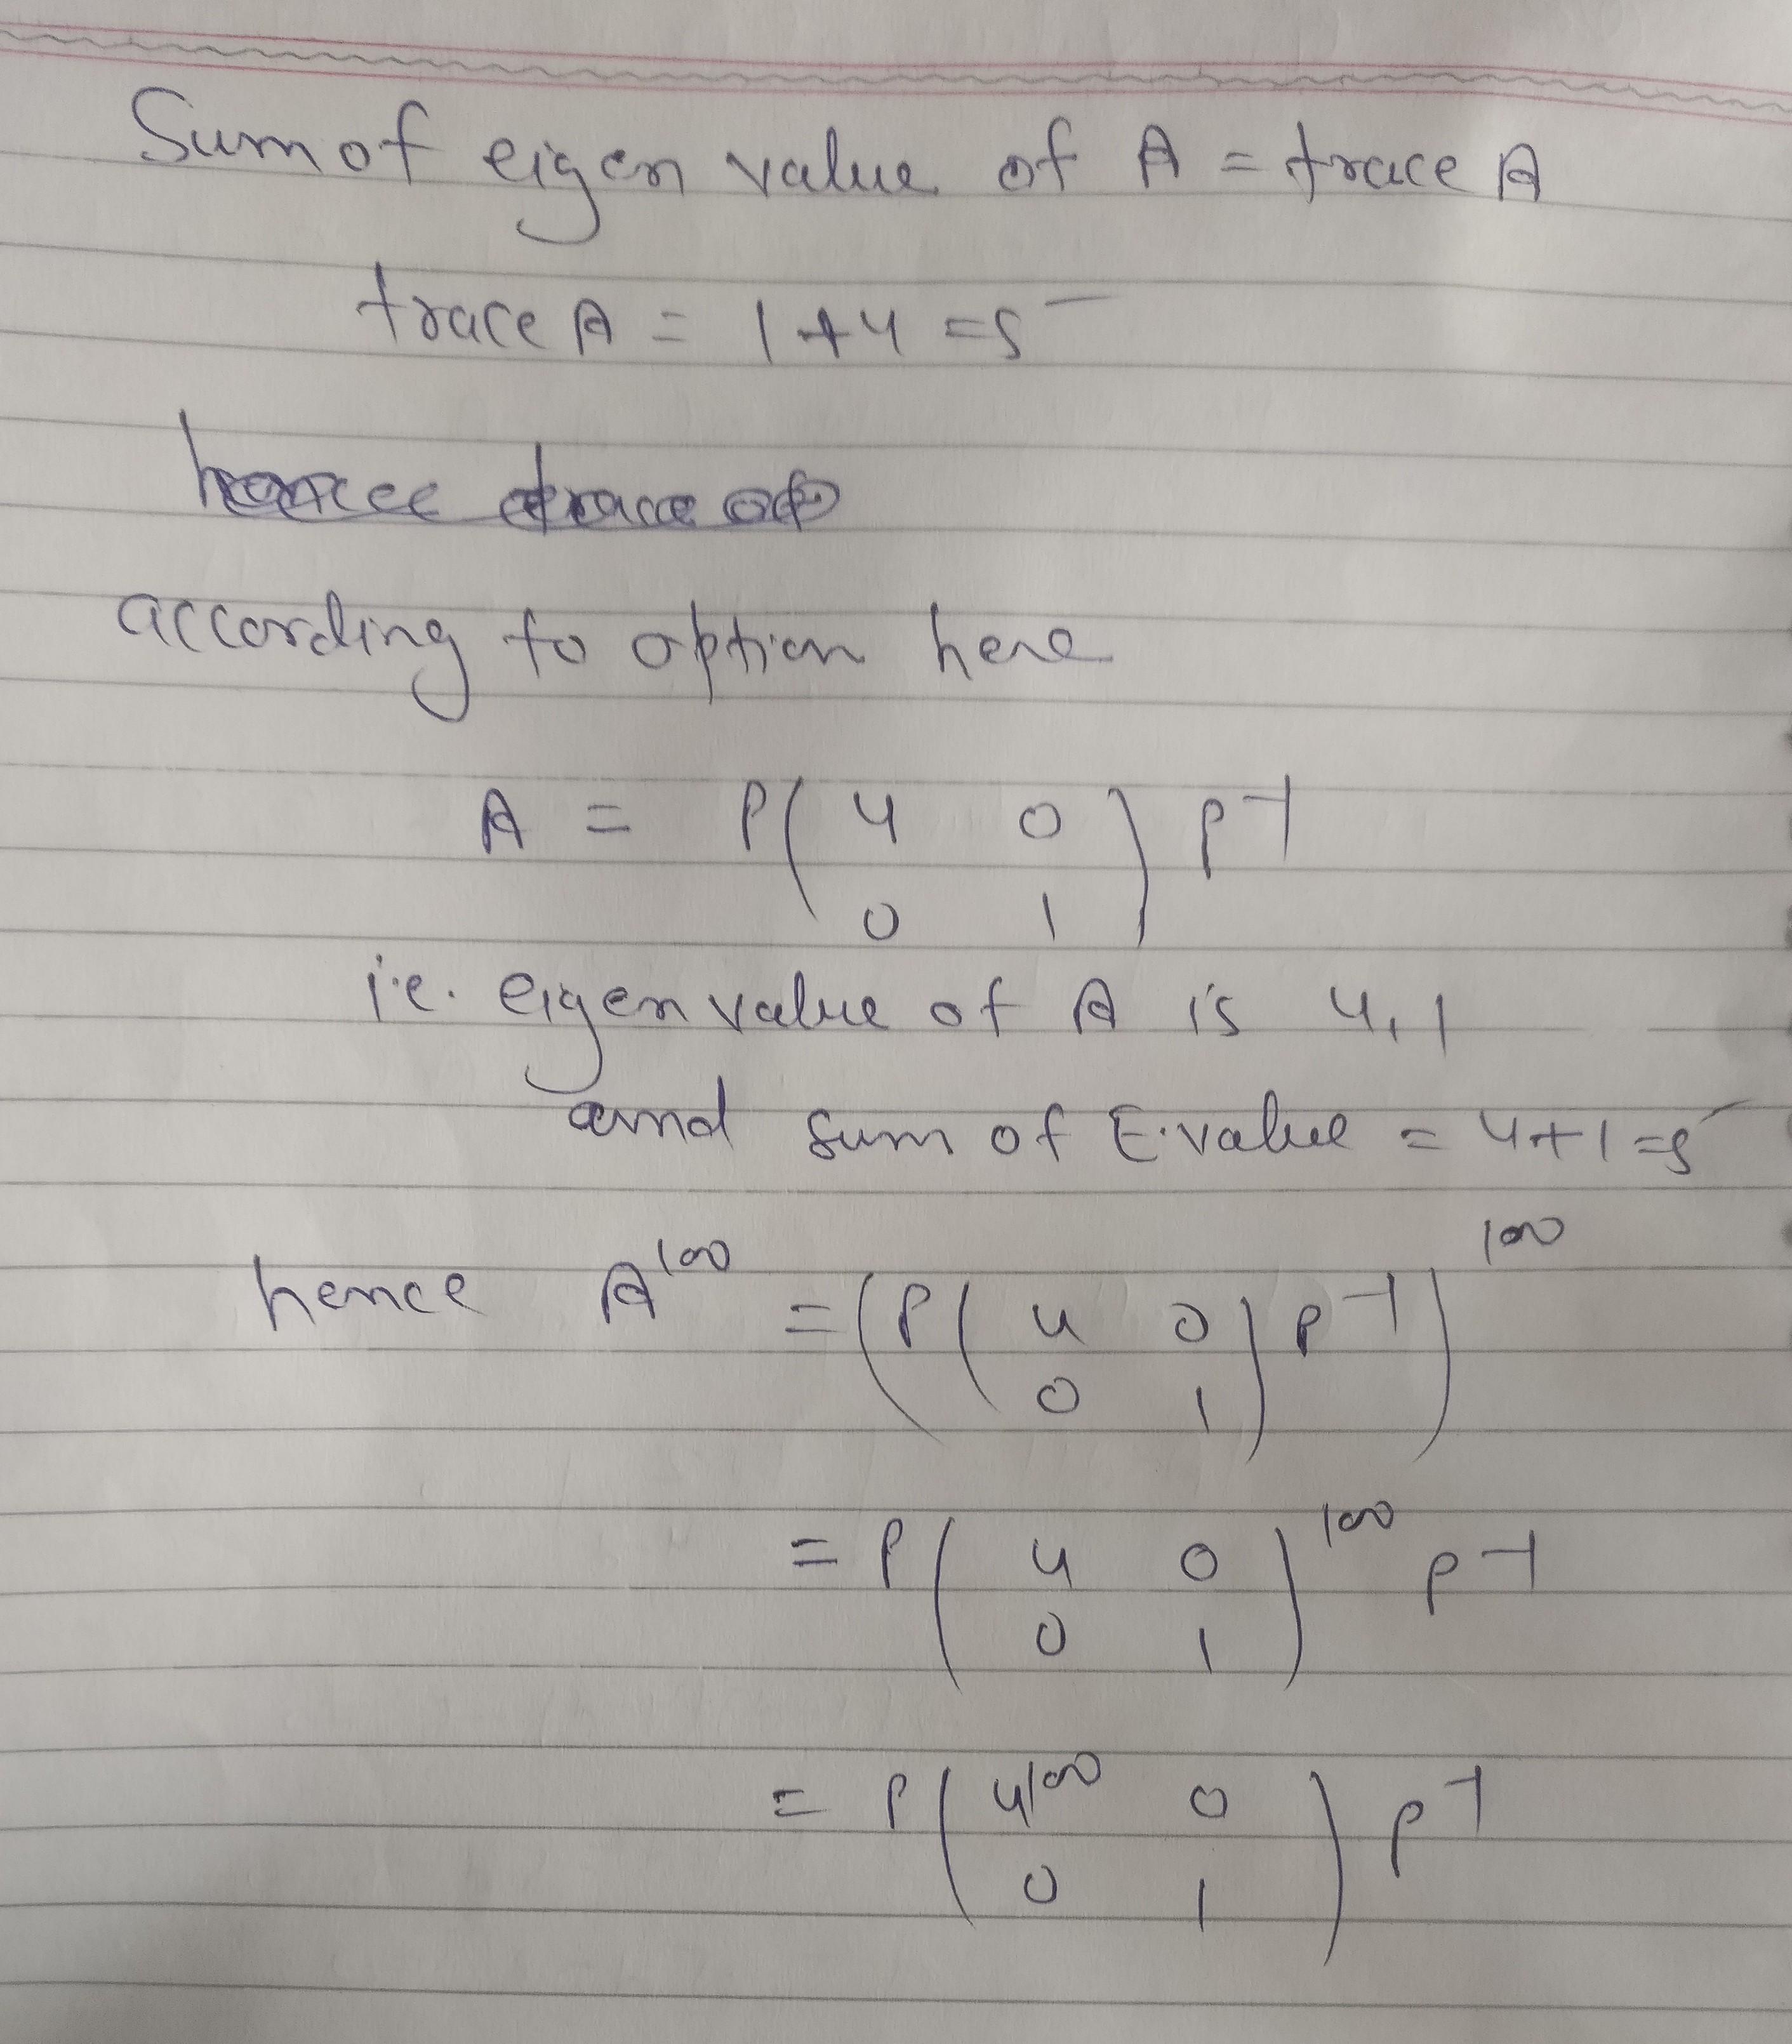 Sum of eigen value of A = trace A
trace A = 1+4 =5
hence trace of
according to option here
A = P( 4 0 ) P-1
0 1
i.e. eigen value of A is 4,1
and sum of E.value = 4+1=5
hence A^100 = (P( 4 0 ) P-1)^100
0 1
= P( 4 0 )^100 P-1
0 1
= P( 4^100 0 ) P-1
0 1